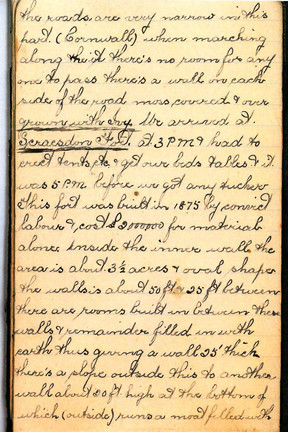 the roads are very narrow in this
part. (Cornwall) when marching
along the it there's no room for any
one to pass there's a wall on each
side of the road moss covered & over
grown with Ivy We arrived at
Scraesdon Ft at 3 PM & had to
erect tents, etc & get our beds tables & it
was 5 P.M. before we got any tucker
This fort was built in 1875 by convict
labour & cost £ for material
alone inside the inner wall the
area is about 3½ acres & oval shape
the walls is about 50ft & 25ft between
there are rooms built in between these
walls & remainder filled in with
earth thus giving a wall 25' thick
there's a slope outside this to another
wall about 20ft. high at the bottom of
which (outside) runs a moat filled with